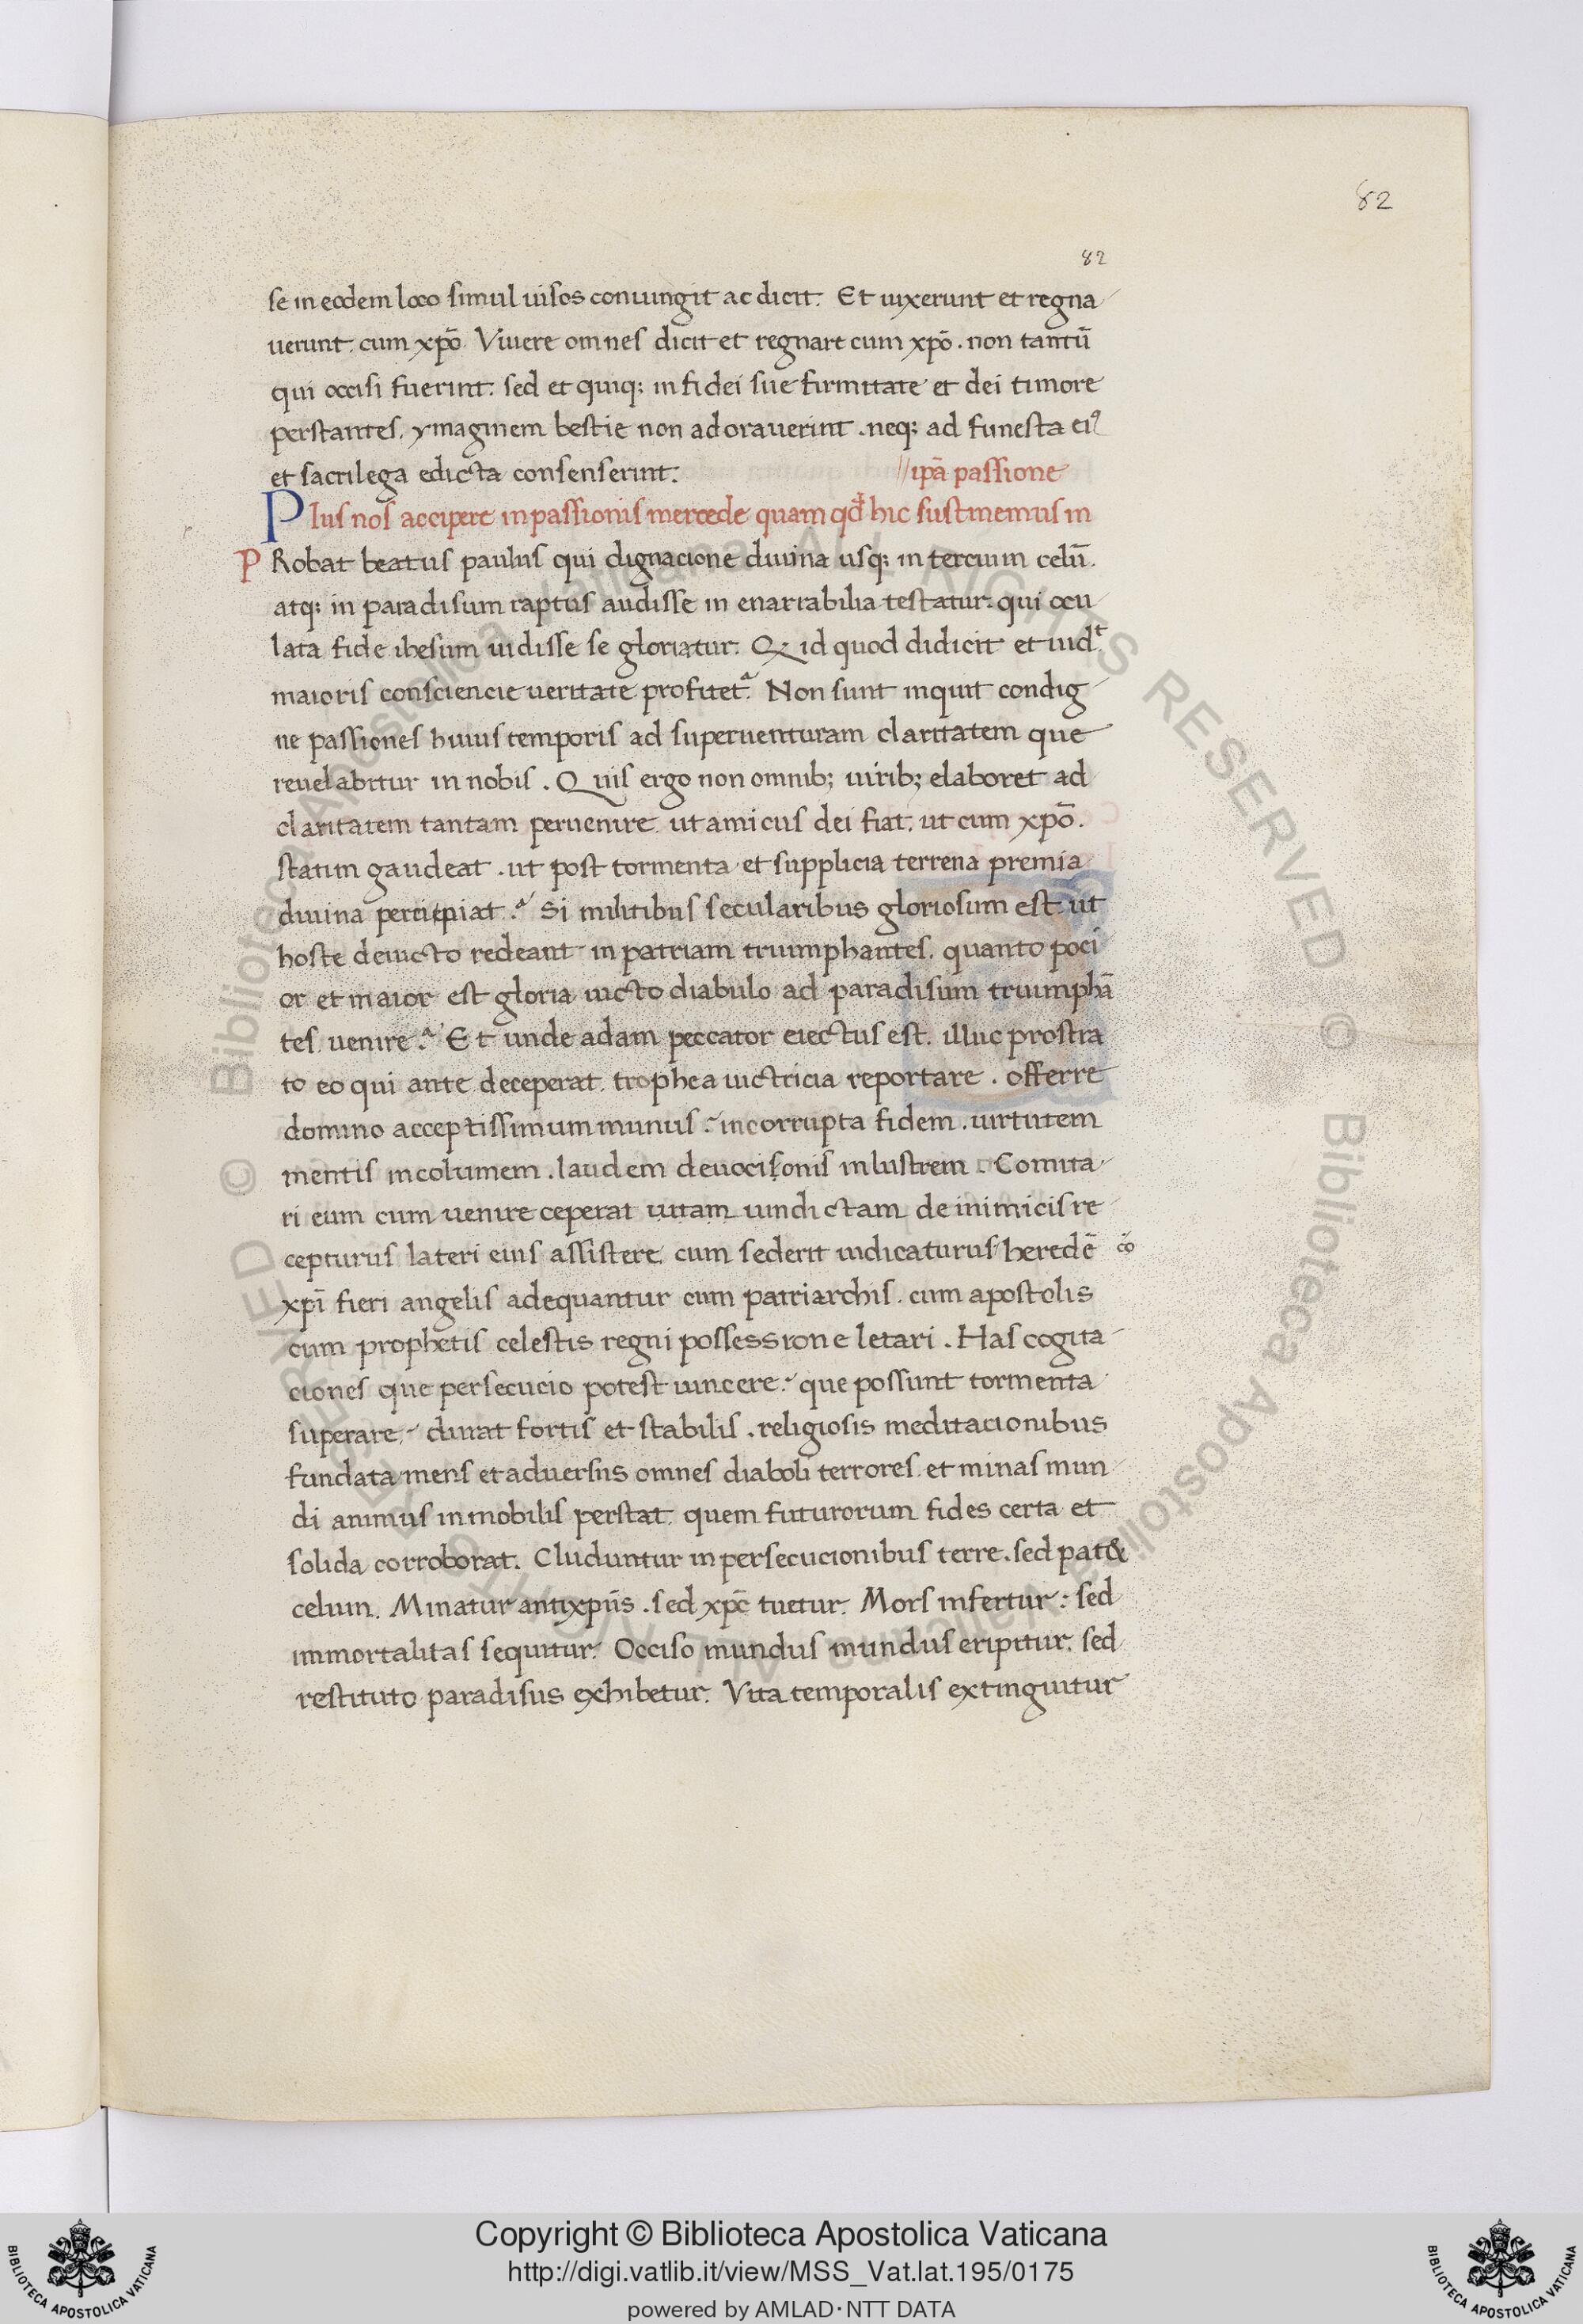 82
82
se in eodem loco simul uisos coniungit ac dicit. Et uixerunt et regna
uerunt. cum xp̄o. Viuere omnes dicit et regnare cum xp̄o. non tantū
qui occisi fuerint. sed et quiq; in fidei sue firmitate et dei timore
perstantes. ymaginem bestie non adorauerint. neq; ad funesta eiꝰ
et sacrilega edicta consenserint. //ipā passione
PIus nos accipere in passionis mercede quam qđ hic sustinemus in
P Robat beatus paulus qui dignacione diuina usq; in tercium celū.
atq; in paradisum raptus audisse in enarrabilia testatur. qui ocu
lata fide ihesum uidisse se gloriatur. Q id quod didicit et uidᵗ.
maioris consciencie ueritate profitetᵃ. Non sunt inquit condig
ne passiones huius temporis ad superuenturam claritatem que
reuelabitur in nobis. Quis ergo non omnib; uirib; elaboret ad
claritatem tantam peruenire. ut amicus dei fiat. ut cum xp̄o.
statim gaudeat. ut post tormenta et supplicia terrena premia
diuina percipiat. Si militibus secularibus gloriosum est ut
hoste deuicto redeant in patriam triumphantes. quanto poci
or et maior est gloria uicto diabulo ad paradisum triumphā
tes uenire. Et unde adam peccator eiectus est. illuc prostra
to eo qui ante deceperat. trophea uictricia reportare. offerre
domino acceptissimum munus. incorrupta fidem. uirtutem
mentis incolumem. laudem deuocisonis inlustrem. Comita
ri eum cum uenire ceperat uitam uindictam de inimicis re
cepturus lateri eius assistere cum sederit iudicaturus heredē cō
xpī fieri angelis adequantur cum patriarchis. cum apostolis
cum prophetis celestis regni possessione letari. Has cogita
ciones que persecucio potest uincere. que possunt tormenta
superare. durat fortis et stabilis. religiosis meditacionibus
fundata mens et aduersus omnes diaboli terrores et minas mun
di animus inmobilis perstat. quem futurorum fides certa et
solida corroborat. Cluduntur in persecucionibus terre. sed pat&
celum. Minatur antixpūs. sed xpc̄ tuetur. Mors infertur: sed
immortalitas sequitur. Occiso mundus mundus eripitur. sed
restituto paradisus exhibetur. Vita temporalis extinguitur
© Biblioteca Apostolica Vaticana ALL RIGHTS RESERVED © Biblioteca Apostolica Vaticana ALL RIGHTS RESERVED
Copyright © Biblioteca Apostolica Vaticana
http://digi.vatlib.it/view/MSS_Vat.lat.195/0175
powered by AMLAD·NTT DATA
BIBLIOTECA APOSTOLICA VATICANA
BIBLIOTECA APOSTOLICA VATICANA